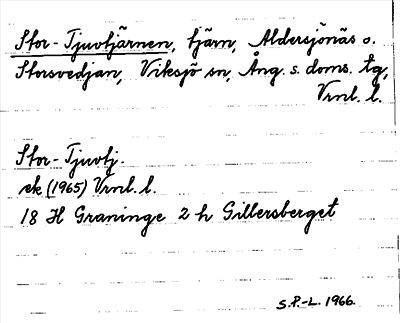 Stor-Tjuvtjärnen, tjärn, Åldersjönäs o.
Storsvedjan, Viksjö sn, Ång. s. doms. tg,
Vrnl. l.
Stor-Tjuvtj.
ek (1965) Vrnl. l.
18 H Graninge 2 h Gillersberget
S.P.-L. 1966.